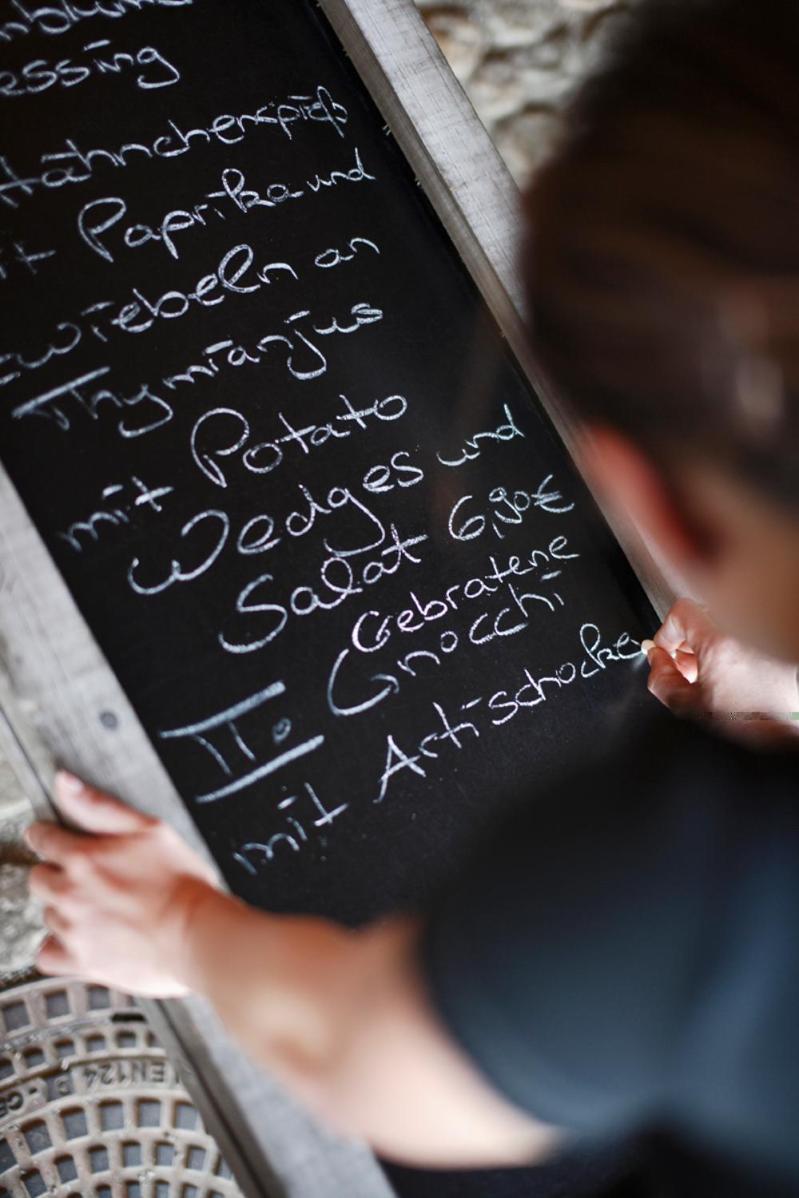 essing
Hähnchenspieß
Paprika und
zwiebeln an
Thymianjus
mit Potato
Wedges und
Salat 6,90€
II. Gebratene
Gnocchi
mit Artischocke
EN124